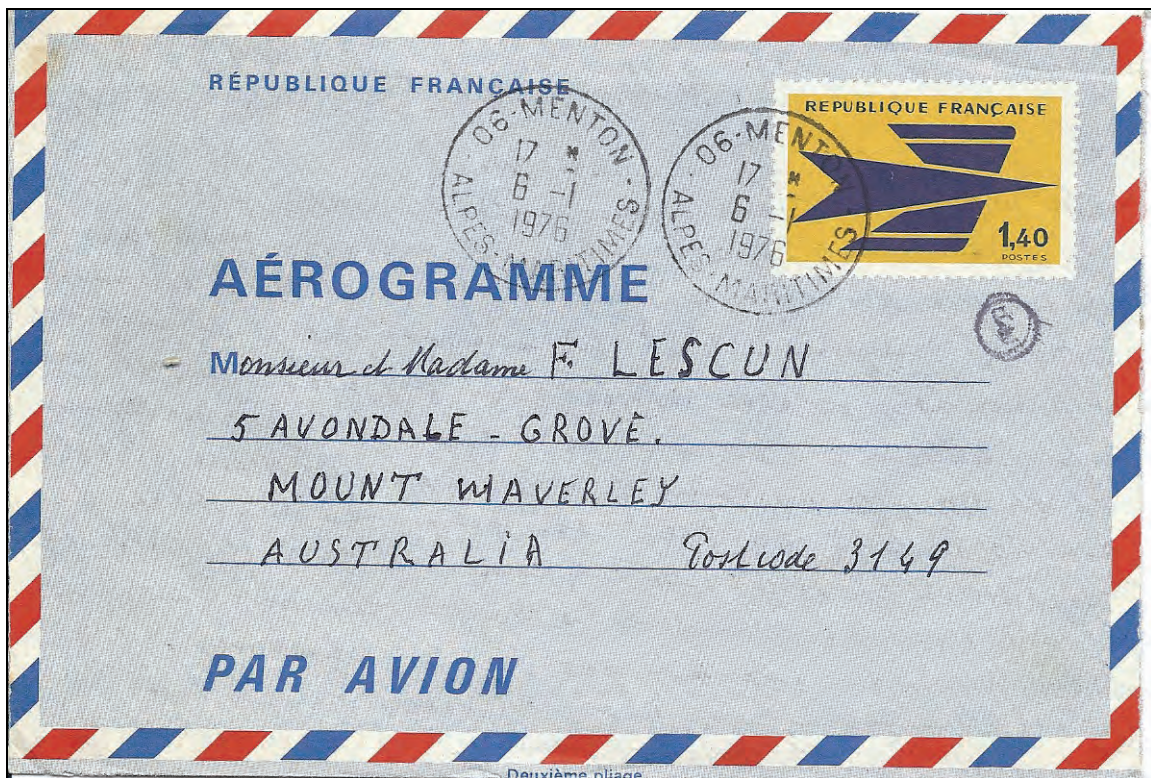 RÉPUBLIQUE FRANÇAISE
06-MENTON
17 *
6 -1
1976
ALPES-MARITIMES
06-MENTON
17 *
6 -1
1976
ALPES-MARITIMES
REPUBLIQUE FRANÇAISE
1,40
POSTES
AÉROGRAMME
Monsieur et Madame F. LESCUN
5 AVONDALE - GROVE.
MOUNT WAVERLEY
AUSTRALIA Postcode 3149
PAR AVION
Deuxième pliage